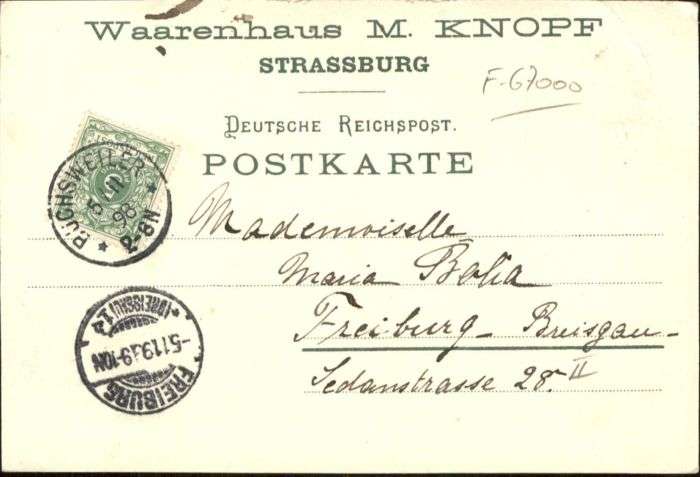 Waarenhaus M. KNOPF
STRASSBURG
F-67000
DEUTSCHE REICHSPOST.
POSTKARTE
BUCHSWEILER
5 11
98
2-8N
Mademoiselle
Maria
Freiburg - Breisgau -
Sedanstrasse 28. II
FREIBURG
(BREISGAU) 1